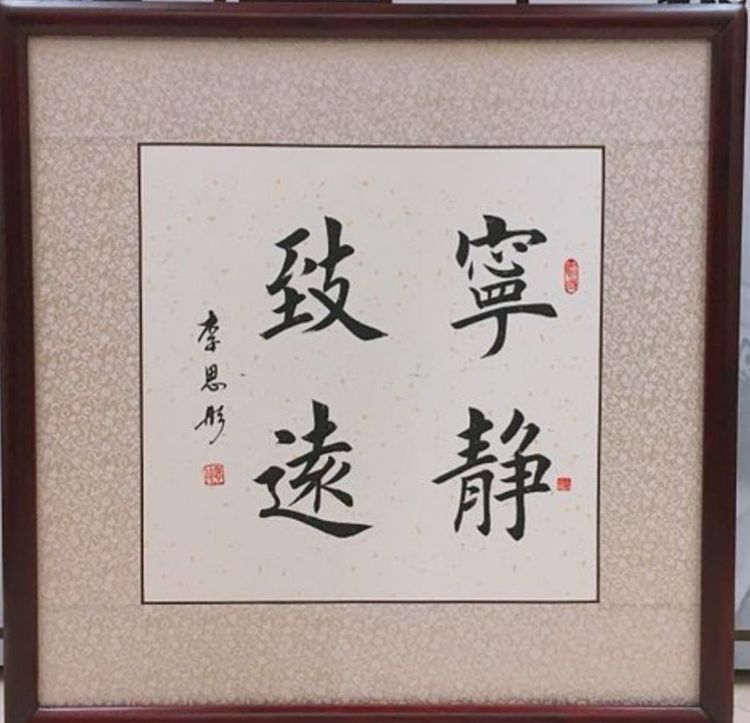 寧靜
致遠
李思彤